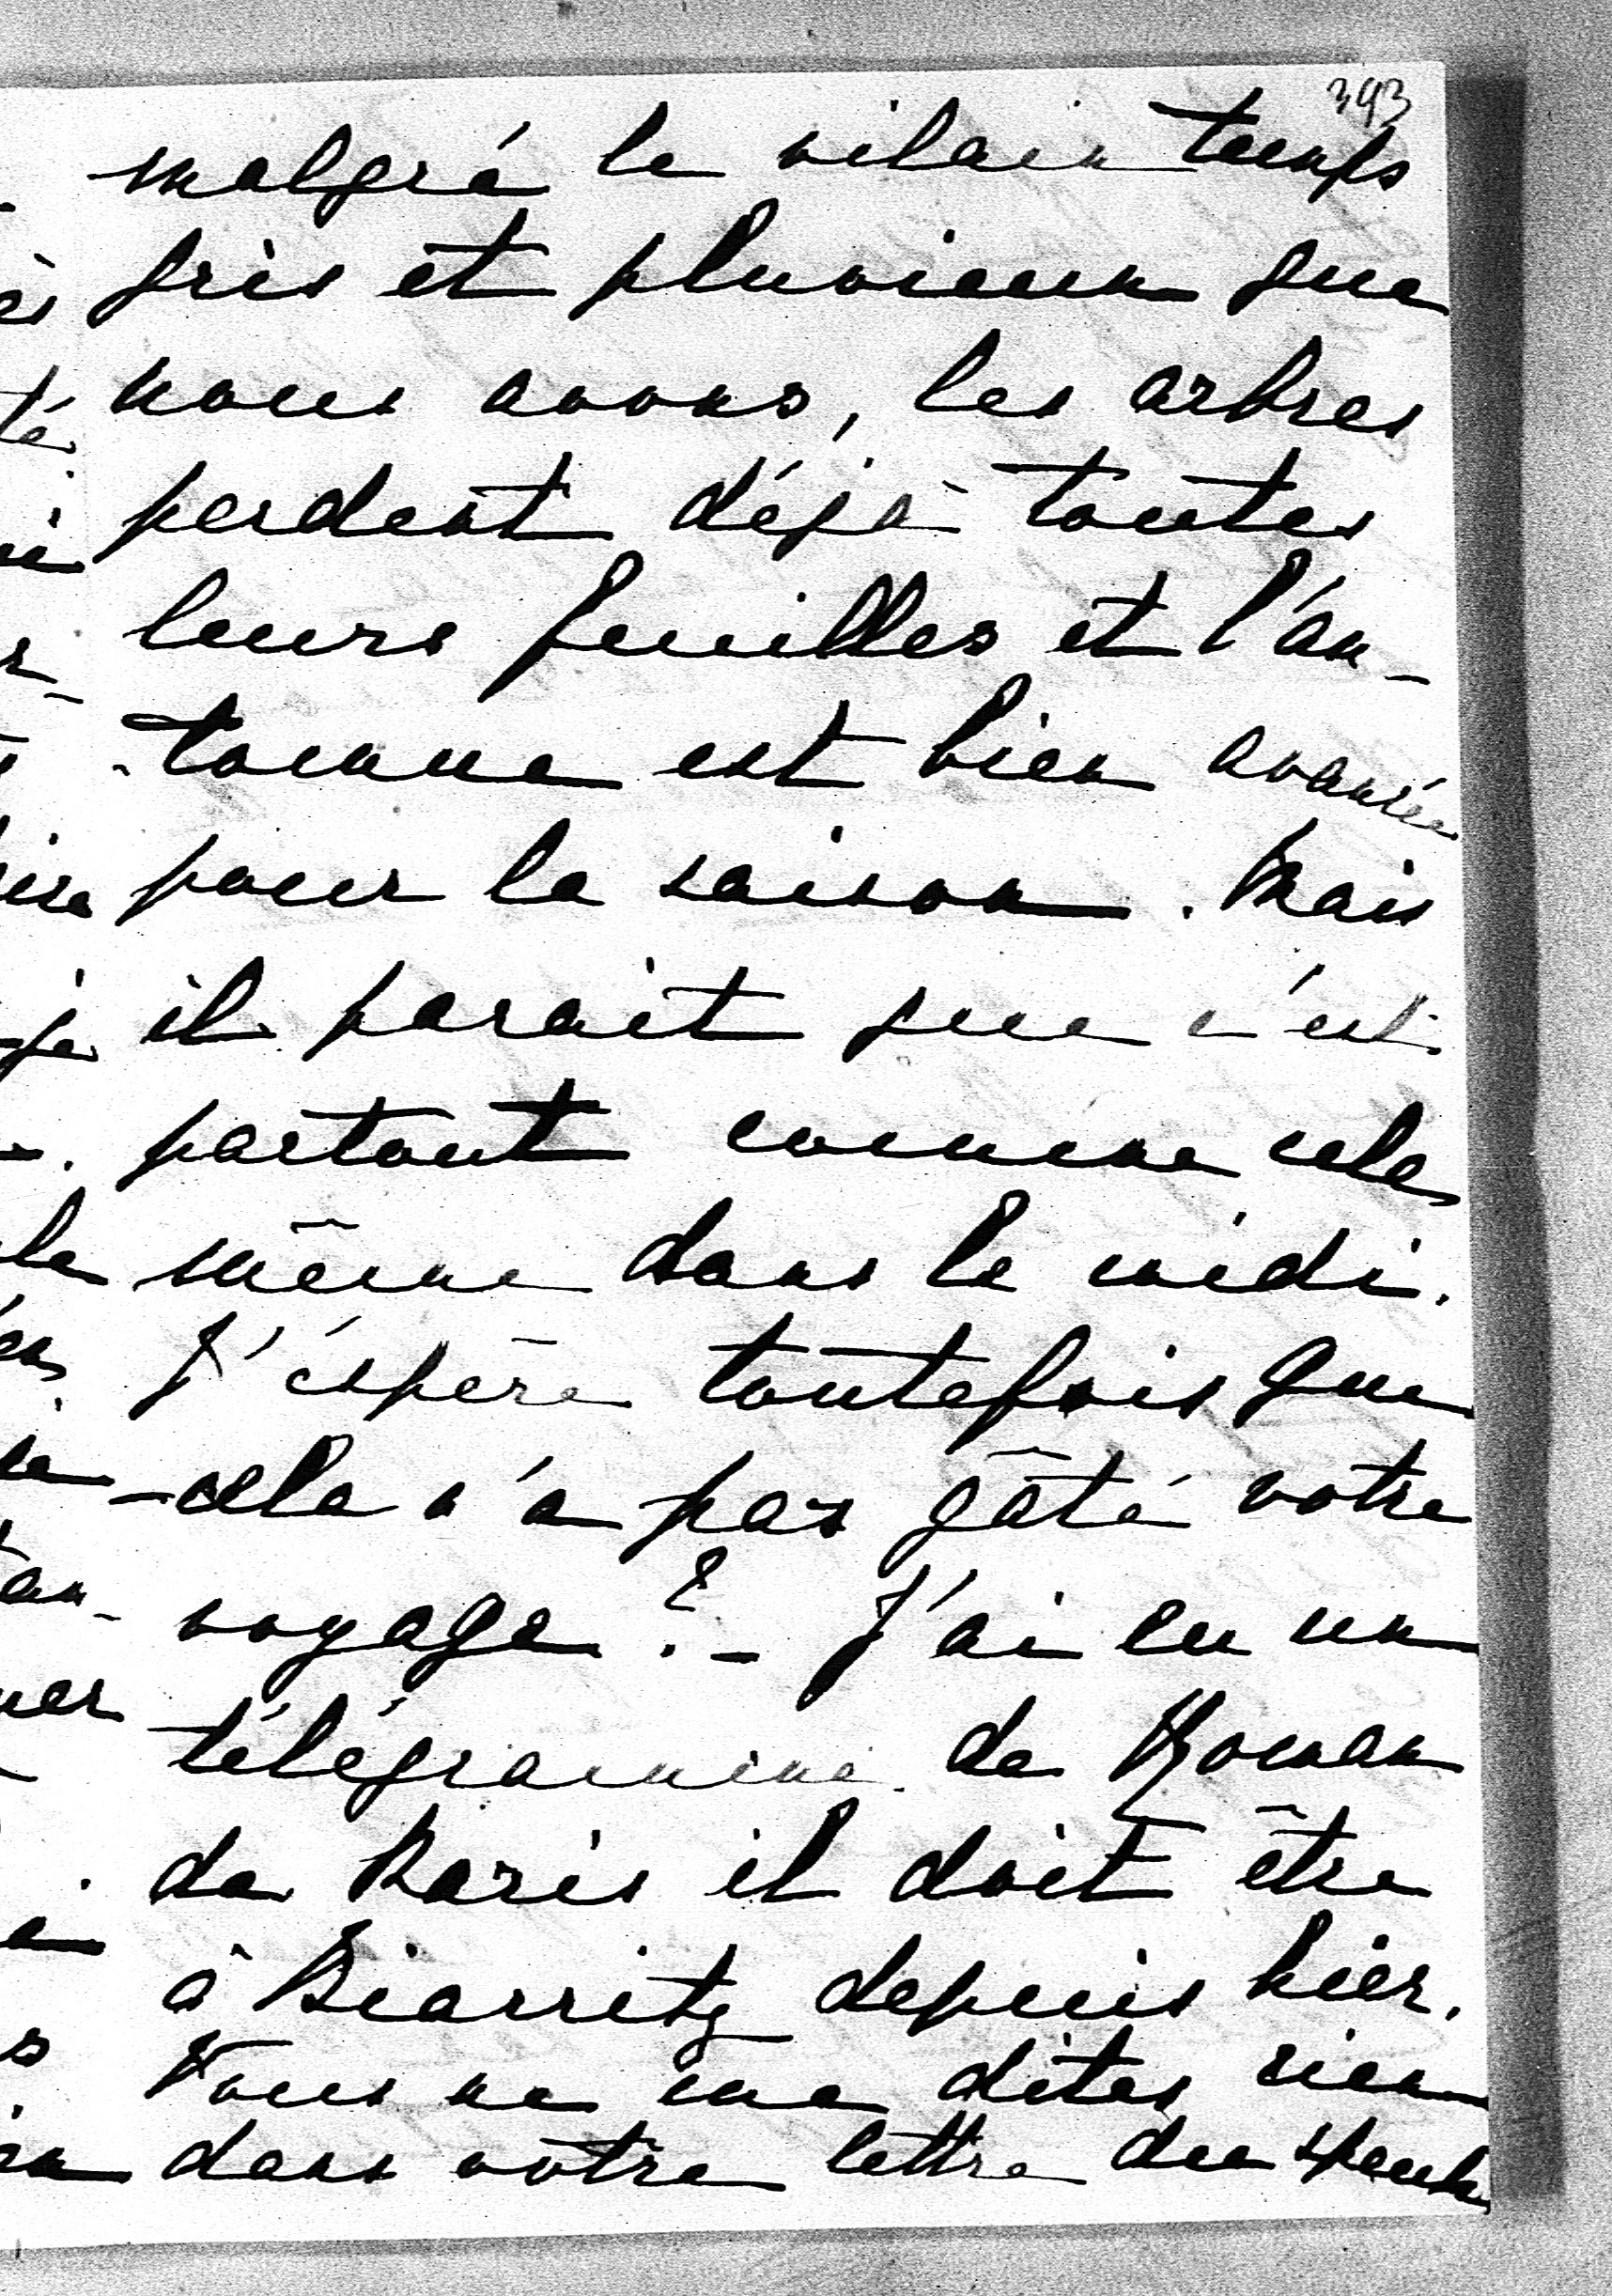 393
malgré le vilain temps
gris et pluvieux que
nous avons, les arbres
perdent déjà toutes
leurs feuilles et l'au-
-tomne est bien avancée
pour la saison. Mais
il parait que c'est
partout comme cela
même dans le midi.
J'éspère toutefois que
cela n'a pas gâté votre
voyage ? - J'ai eu un
télégramme de Roman
de Paris il doit être
à Biarritz depuis hier.
Vous ne me dites rien
dans votre lettre du